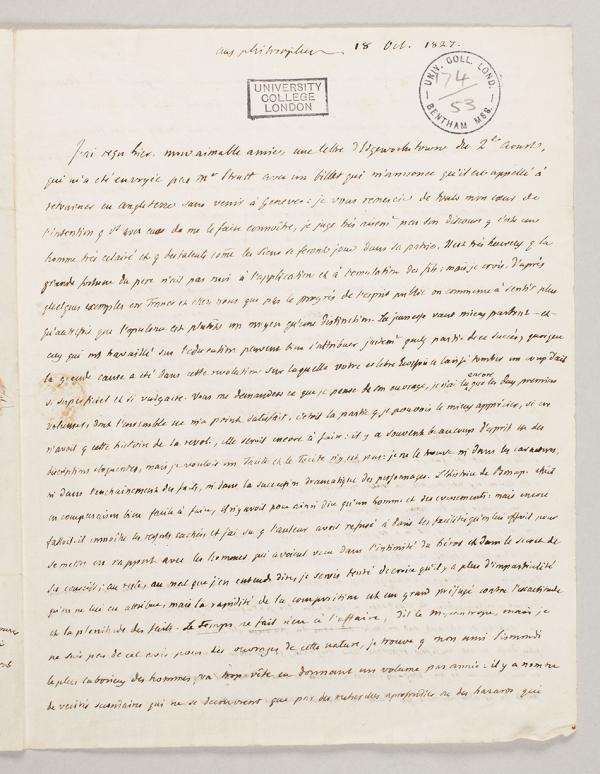 aux philosophes 18 Oct. 1827.
UNIVERSITY
COLLEGE
LONDON
UNIV. COLL. LOND.
BENTHAM MSS.
174
53
J'ai reçu hier, mon aimable amie, une lettre d'Edgeworthstown du 2d Aoust,
qui m'a été envoyée par Mr Strutt avec un billet qui m'annonce qu'il est appellé à
retourner en angleterre sans venir à Geneve: je vous remercie de tout mon cœur de
l'intention q vs avez eue de me le faire connoître, je juge très aisemt par son discours q c'est un
homme très eclairé et q des talents come les siens se feront jour dans sa patrie. Il est très heureux q la
grande fortune du pere n'ait pas nui à l'application et à l'emulation des fils: mais je crois, d'après
quelques exemples en France et chez nous que par le progrès de l'esprit public on commence à sentir plus
qu'autrefois que l'opulence est plutôt un moyen qu'une distinction. La jeunesse vaut mieux partout — et
ceux qui ont travaillé sur l'education peuvent bien s'attribuer partie de ce succès, quoique
la grande cause a été dans cette revolution sur laquelle votre celebre a laissé tomber un coup d'œil
si superficiel et si vulgaire. Vous me demandez ce que je pense de son ouvrage, je n'ai lu encore que les deux premiers
volumes, dont l'ensemble ne m'a point satisfait, c'etoit la partie q je pouvois le mieux apprécier, si on
n'avoit q cette histoire de la revol., elle seroit encore à faire: il y a souvent beaucoup d'esprit et des
descriptions eloquentes, mais je voulois un Tacite et le Tacite n'y est pas: je ne le trouve ni dans les caracteres,
ni dans l'enchainement des faits, ni dans la succession dramatique des personnages. L'histoire de Bonap. etoit
en comparaison bien facile à faire, il n'y avoit pour ainsi dire qu'un homme et des evenements: mais encore
falloit-il connoître les ressorts cachés et j'ai su q l'auteur avoit refusé à Paris les facilités qu'on lui offroit pour
se mettre en rapport avec les hommes qui avoient vecu dans l'intimité du héros et dans le secret de
ses conseils; au reste, au mal que j'en entends dire, je serois tenté de croire qu'il y a plus d'impartialité
qu'on ne lui en attribue, mais la rapidité de la composition est un grand préjugé contre l'exactitude
et la plenitude des faits. Le Temps ne fait rien à l'affaire, dit le Misantrope, mais je
ne suis pas de cet avis pour des ouvrages de cette nature, je trouve q mon ami Sismondi
le plus laborieux des hommes, va trop vîte en donnant un volume par année: il y a nombre
de verités secretaires qui ne se decouvrent que par des recherches aprofondies ou des hazards qui